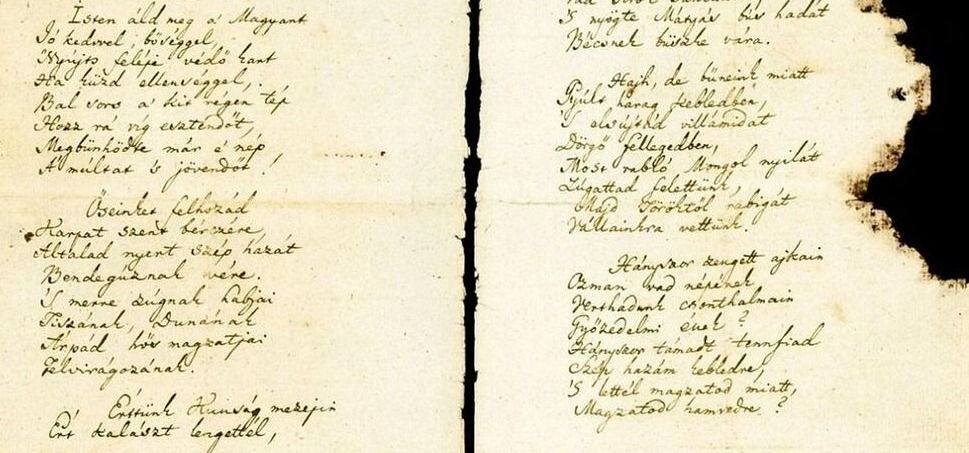 Isten áld meg a' Magyart
Jó kedvvel, bőséggel,
'Nyújts feléje védő kart
Ha küzd ellenséggel,
Bal sors a' kit régen tép
Hozz rá víg esztendőt,
Megbűnhödte már e' nép
A' múltat 's jövendőt!
Őseinket felhozád
Karpat szent bérczére,
Általad nyert szép hazát
Bendegúznak vére.
'S merre zúgnak habjai
Tiszának, Dunának
Árpád hős magzatjai
Felvirágozának.
Értünk Kunság mezejin
Ért kalászt lengettél,
'S nyögte Mátyás bús hadát
Bécsnek büszke vára.
Hajh, de bűneink miatt
Gyúlt harag kebledben,
'S elsújtád villámidat
Dörgő fellegedben,
Most rabló Mongol nyilát
Zúgattad felettünk,
Majd Töröktől rabigát
Vállainkra vettünk.
Hányszor zengett ajkain
Ozman vad népének
Vert hadunk csonthalmain
Győzedelmi ének?
Hányszor támadt tennfiad
Szép hazám kebledre,
'S lettél magzatod miatt,
Magzatod hamvedre?